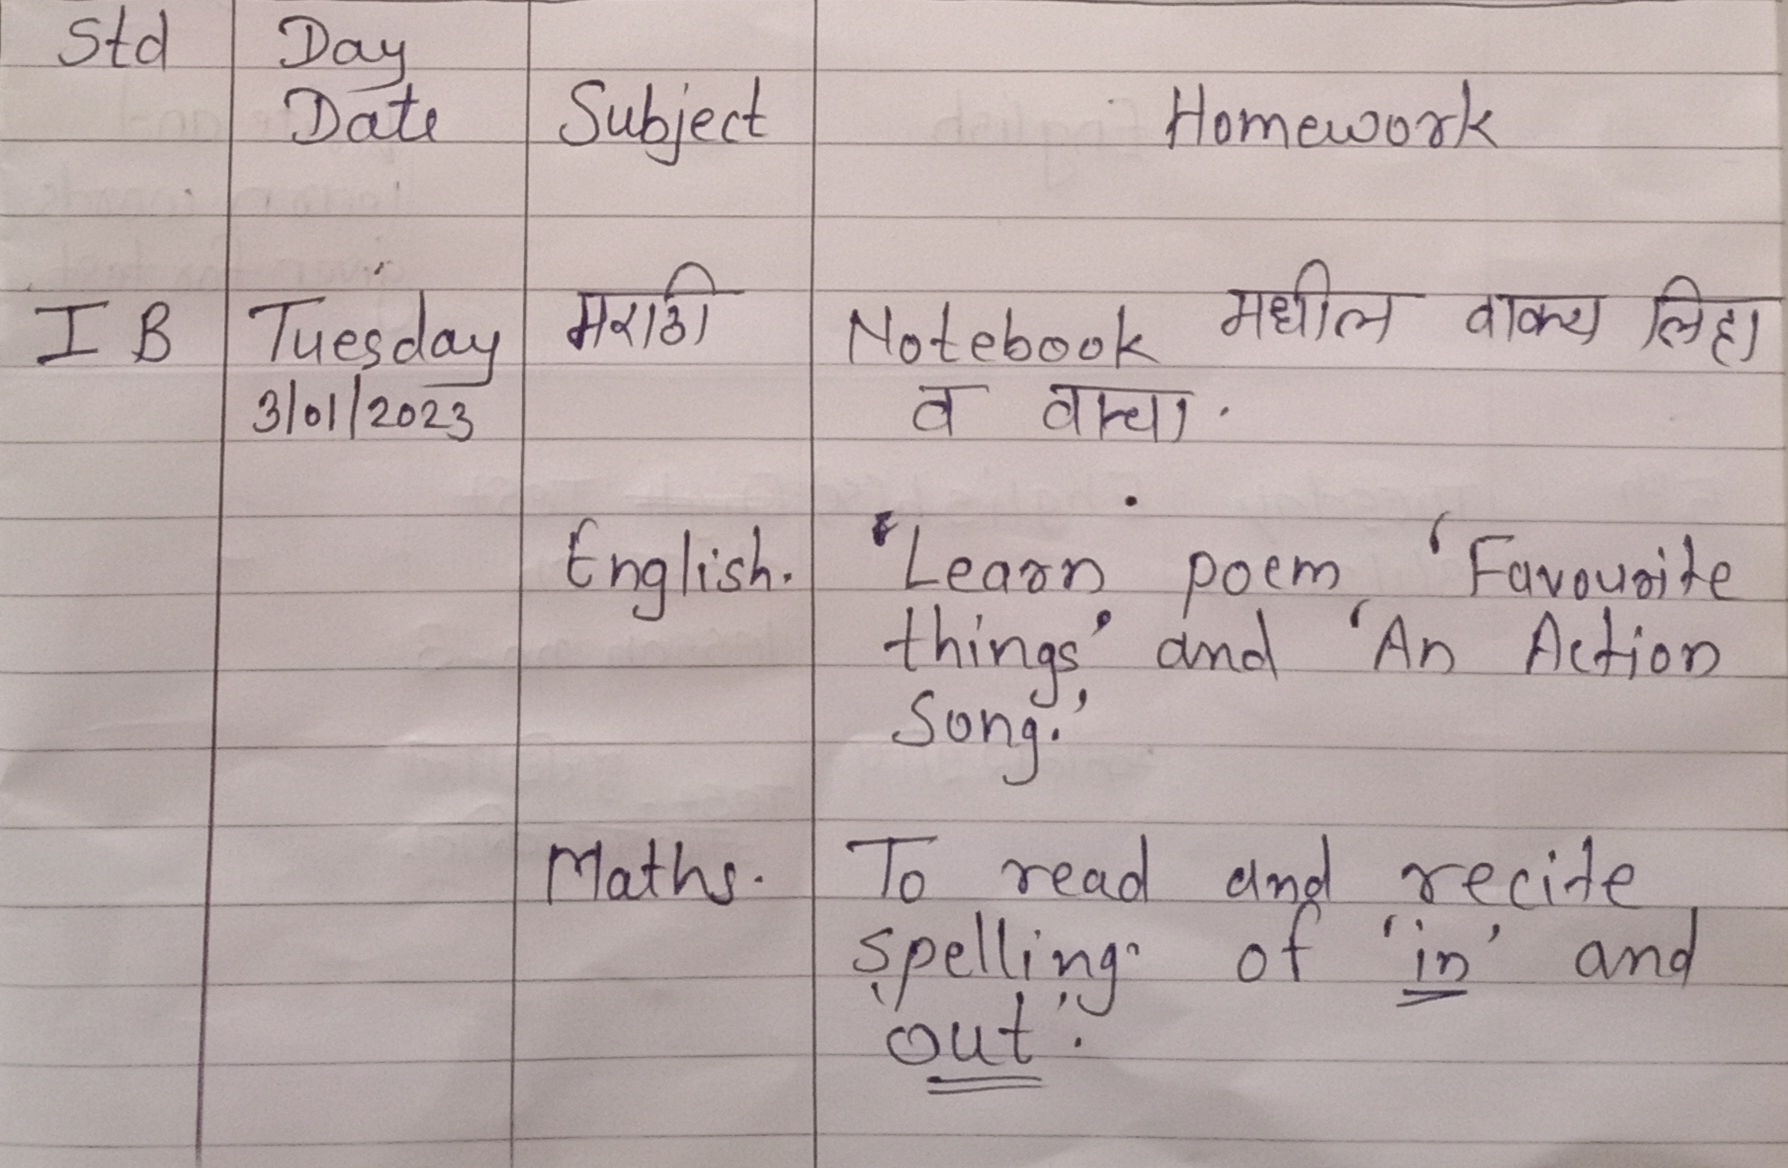 Std Day
Date Subject Homework
I B Tuesday मराठी Notebook मधील वाक्य लिहा
3/01/2023 व वाचा.
English. 'Learn poem 'Favourite
things' and 'An Action
Song.'
Maths. To read and recite
spelling of 'in' and
'out'.